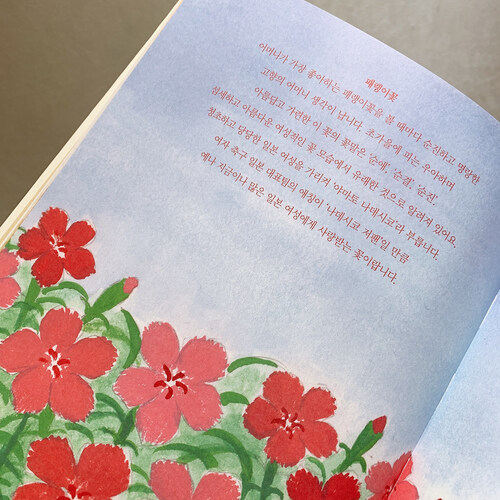 패랭이꽃
어머니가 가장 좋아하는 패랭이꽃을 볼 때마다 순진하고 명랑한
고향의 어머니 생각이 납니다. 초가을에 피는 우아하며
아름답고 가련한 이 꽃의 꽃말은 '순애', '순결', '순진'.
섬세하고 아름다운 여성적인 꽃 모습에서 유래한 것으로 알려져 있어요.
청초하고 당당한 일본 여성을 가리켜 '야마토 나데시코'라 부릅니다.
여자 축구 일본 대표팀의 애칭이 '나데시코 저팬'일 만큼
예나 지금이나 많은 일본 여성에게 사랑받는 꽃이랍니다.